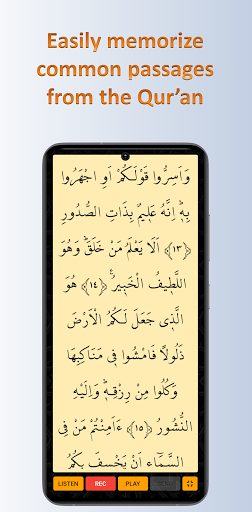 Easily memorize
common passages
from the Qur’an
وَاَسِرُّوا قَوْلَكُمْ اَوِ اجْهَرُوا
بِهٖۜ اِنَّهُ عَل۪يمٌ بِذَاتِ الصُّدُورِ
﴿١٣﴾ اَلَا يَعْلَمُ مَنْ خَلَقَۜ وَهُوَ
اللَّط۪يفُ الْخَب۪يرُ۟ ﴿١٤﴾ هُوَ
الَّذ۪ي جَعَلَ لَكُمُ الْاَرْضَ
ذَلُولاً فَامْشُوا ف۪ي مَنَاكِبِهَا
وَكُلُوا مِنْ رِزْقِه۪ۜ وَاِلَيْهِ
النُّشُورُ ﴿١٥﴾ ءَاَمِنْتُمْ مَنْ فِي
السَّمَٓاءِ اَنْ يَخْسِفَ بِكُمُ
LISTEN REC PLAY